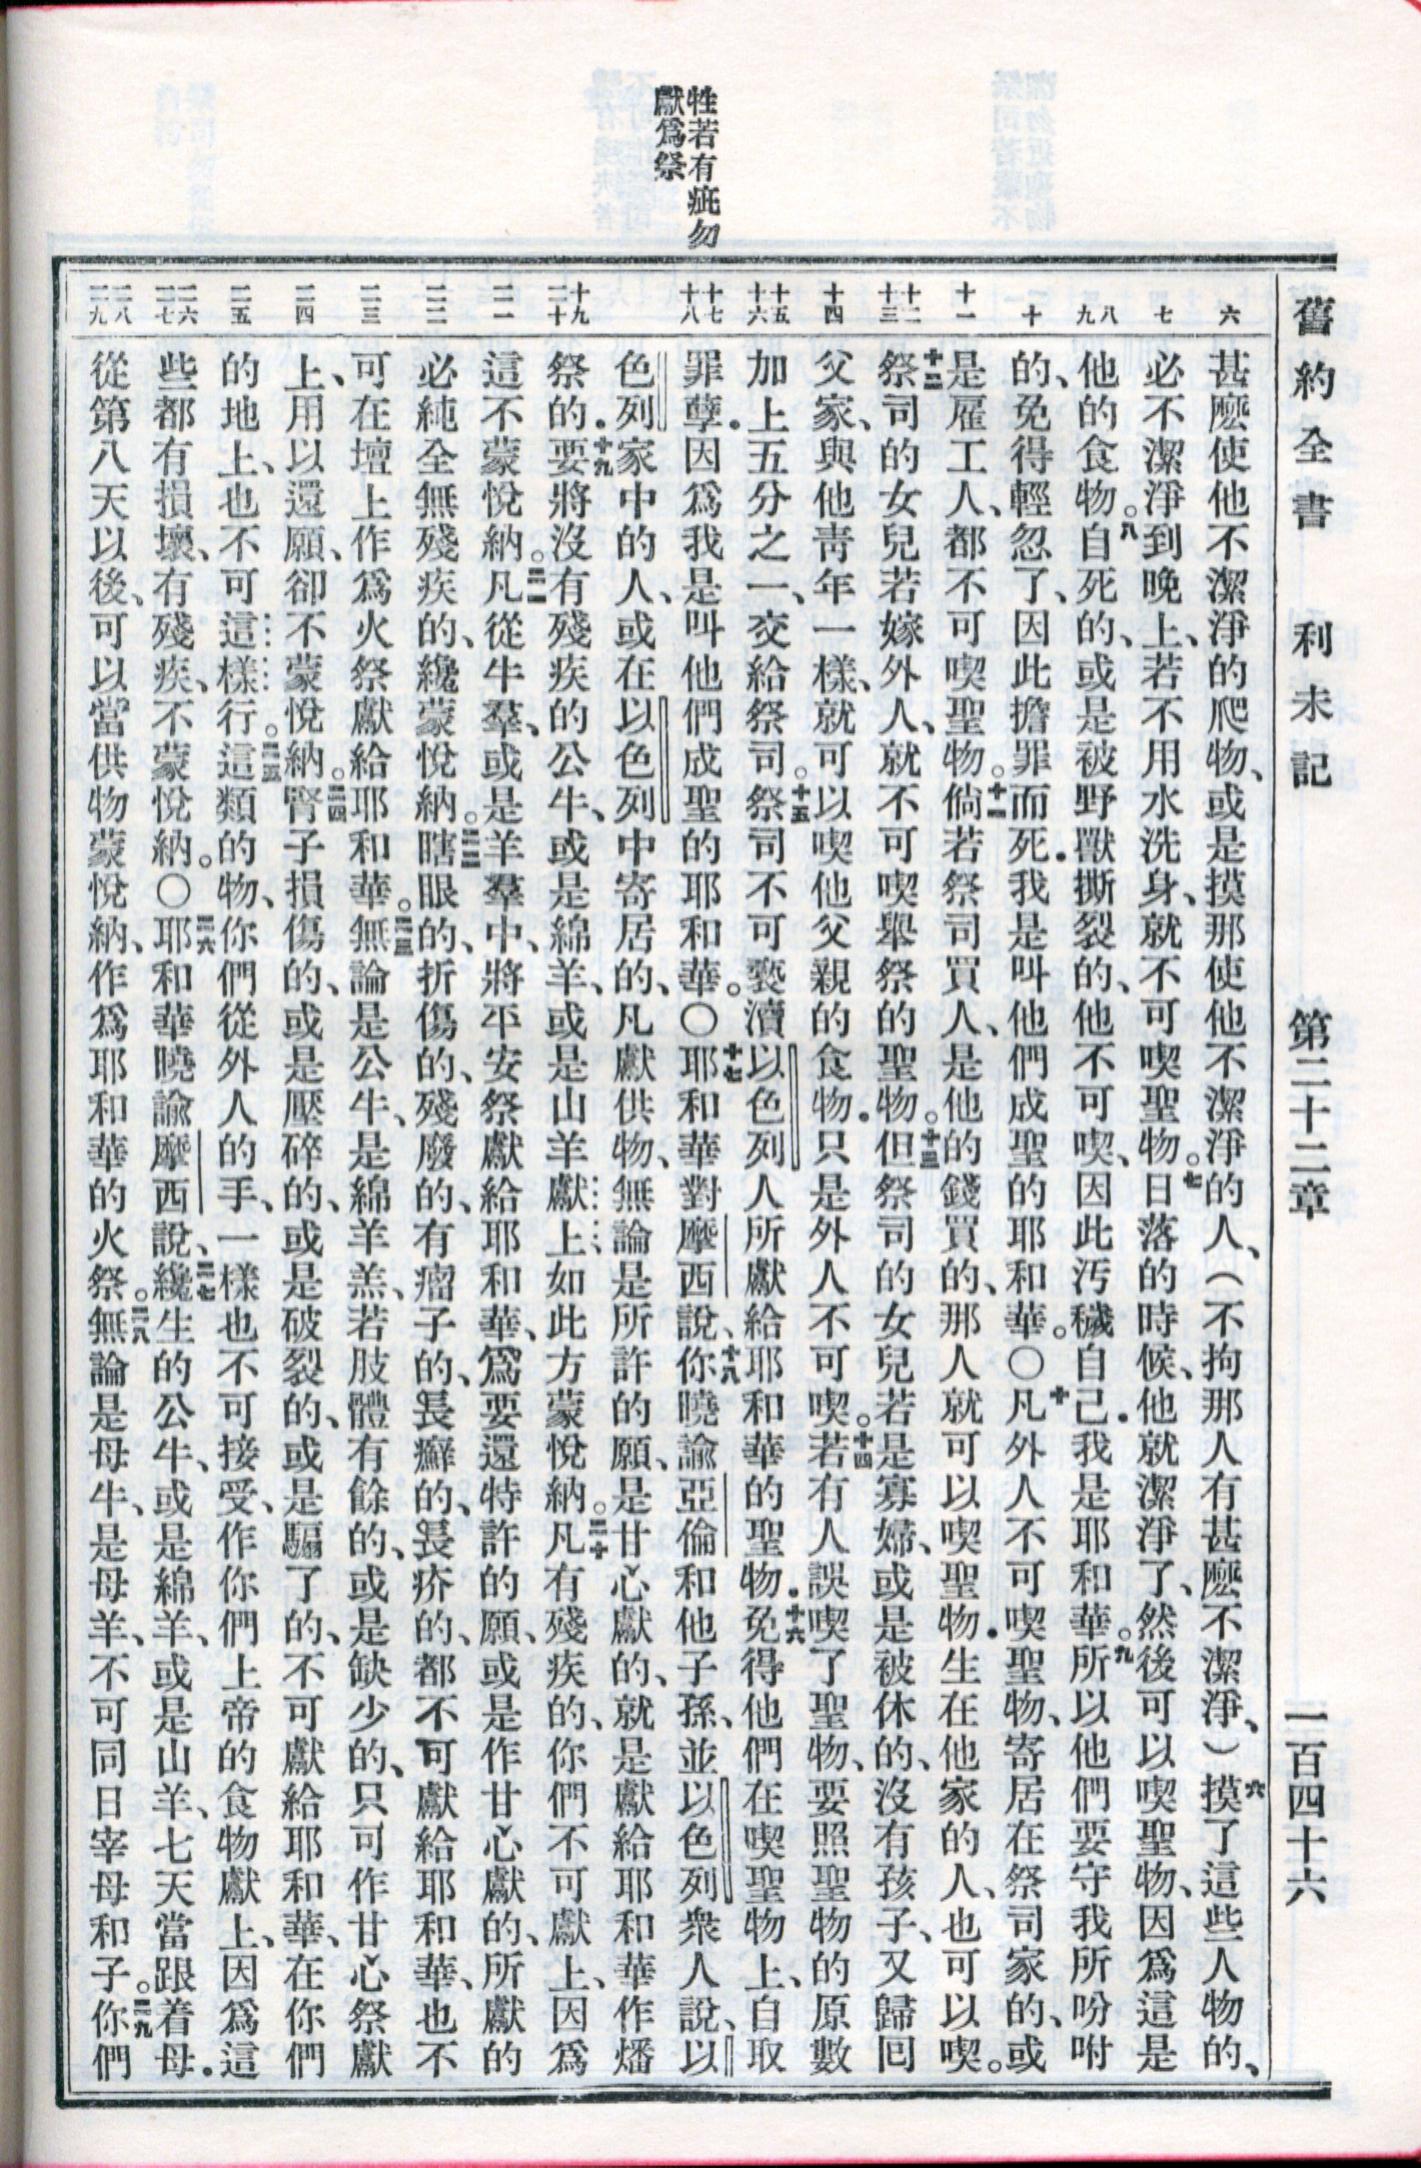 牲若有疵勿
獻爲祭
舊約全書 利未記 第二十二章 一百四十六
六
七
八
九
十
十一
十二
十三
十四
十五
十六
十七
十八
十九
二十
二一
二二
二三
二四
二五
二六
二七
二八
二九
甚麽使他不潔淨的爬物、或是摸那使他不潔淨的人、(不拘那人有甚麽不潔淨、)六摸了這些人物的、
必不潔淨到晚上、若不用水洗身、就不可喫聖物。七日落的時候、他就潔淨了、然後可以喫聖物、因爲這是
他的食物。八自死的、或是被野獸撕裂的、他不可喫、因此汚穢自己．我是耶和華。九所以他們要守我所吩咐
的、免得輕忽了、因此擔罪而死．我是叫他們成聖的耶和華。〇十凡外人不可喫聖物、寄居在祭司家的、或
是雇工人、都不可喫聖物。十一倘若祭司買人、是他的錢買的、那人就可以喫聖物．生在他家的人、也可以喫。
十二祭司的女兒若嫁外人、就不可喫舉祭的聖物。十三但祭司的女兒若是寡婦、或是被休的、沒有孩子、又歸回
父家、與他靑年一樣、就可以喫他父親的食物．只是外人不可喫。十四若有人誤喫了聖物、要照聖物的原數
加上五分之一、交給祭司。十五祭司不可褻瀆以色列人所獻給耶和華的聖物．十六免得他們在喫聖物上、自取
罪孽．因爲我是叫他們成聖的耶和華。〇十七耶和華對摩西說、十八你曉諭亞倫和他子孫、並以色列衆人說、以
色列家中的人、或在以色列中寄居的、凡獻供物、無論是所許的願、是甘心獻的、就是獻給耶和華作燔
祭的．十九要將沒有殘疾的公牛、或是綿羊、或是山羊獻上、如此方蒙悅納。二十凡有殘疾的、你們不可獻上、因爲
這不蒙悅納。二一凡從牛羣、或是羊羣中、將平安祭獻給耶和華、爲要還特許的願、或是作甘心獻的、所獻的
必純全無殘疾的、纔蒙悅納。二二瞎眼的、折傷的、殘廢的、有瘤子的、長癬的、長疥的、都不可獻給耶和華、也不
可在壇上作爲火祭獻給耶和華。二三無論是公牛、是綿羊羔、若肢體有餘的、或是缺少的、只可作甘心祭獻
上、用以還願、卻不蒙悅納。二四腎子損傷的、或是壓碎的、或是破裂的、或是騸了的、不可獻給耶和華、在你們
的地上、也不可這樣行。二五這類的物、你們從外人的手、一樣也不可接受、作你們上帝的食物獻上、因爲這
些都有損壞、有殘疾、不蒙悅納。〇二六耶和華曉諭摩西說、二七纔生的公牛、或是綿羊、或是山羊、七天當跟着母．
從第八天以後、可以當供物蒙悅納、作爲耶和華的火祭。二八無論是母牛、是母羊、不可同日宰母和子。二九你們